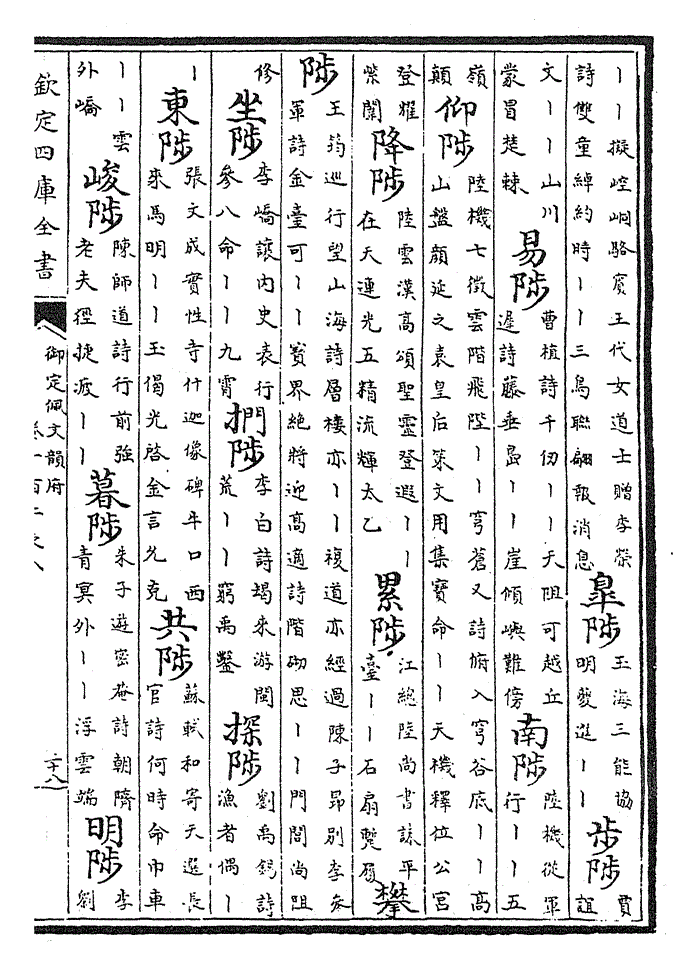 丨丨擬崆峒駱賓王代女道士贈李榮
詩雙童綽約時丨丨三鳥聯翩報消息
皐陟
玉海三能協
明夔逝丨丨
步陟
賈
誼
文丨丨山川
蒙冒楚棘
易陟
曹植詩千仞丨丨天阻可越丘
遲詩藤垂島丨丨崖傾嶼難傍
南陟
陸機從軍
行丨丨五
嶺
顛
仰陟
陸機七徵雲階飛陛丨丨穹蒼又詩俯入穹谷底丨丨高
山盤顔延之袁皇后策文用集寶命丨丨天機釋位公宮
登耀
紫闥
降陟
陸雲漢高頌聖靈登遐丨丨
在天連光五精流輝太乙
累陟
江總陸尚書誄平
臺丨丨石扇蹔履
攀
陟
王筠巡行望山海詩層樓亦丨丨複道亦經過陳子昂別李參
軍詩金臺可丨丨寶界絕將迎高適詩階砌思丨丨門閭尚阻
修
坐陟
李嶠讓內史表行
參八命丨丨九霄
捫陟
李白詩朅來游閩
荒丨丨窮禹鑿
探陟
劉禹錫詩
漁者偶丨
丨
東陟
張文成實性寺什迦像碑牛口西
來馬明丨丨玉偈光啓金言允克
共陟
蘇軾和寄天選長
官詩何時命巾車
丨丨雲
外嶠
峻陟
陳師道詩行前強
老夫徑捷疲丨丨
暮陟
朱子遊密菴詩朝隮
青冥外丨丨浮雲端
明陟
李
劉
欽定四庫全書
御定佩文韻府
卷一百二之八
二十八